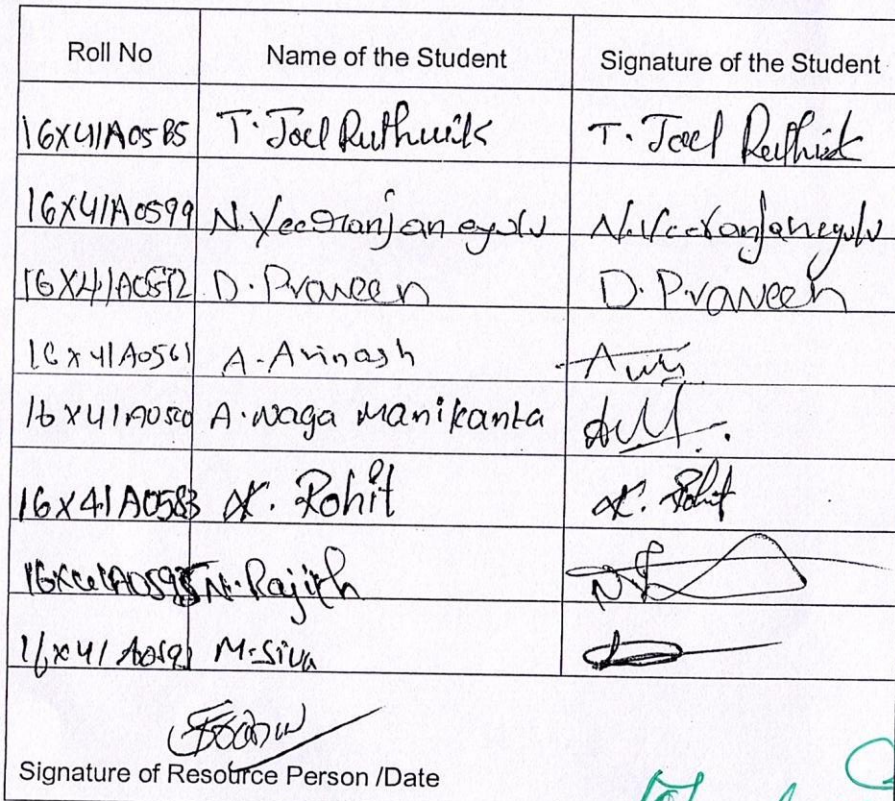 Roll No Name of the Student Signature of the Student
16X41A0585 T. Joel Ruthwik T. Joel Ruthwik
16X41A0599 N. Veeranjaneyulu N. Veeranjaneyulu
16X41A0572 D. Praveen D. Praveen
16X41A0561 A. Avinash
16X41A0560 A. Naga Manikanta
16X41A0583 K. Rohit K. Rohit
N. Rajith
M. Siva
Signature of Resource Person /Date